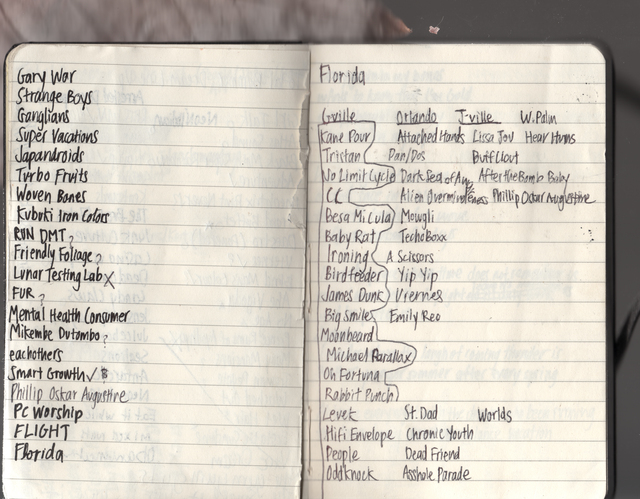 Gary War
Strange Boys
Ganglians
Super Vacations
Japandroids
Turbo Fruits
Woven Bones
Kubuki Iron Colors
RUN DMT ?
Friendly Foliage ?
Lunar Testing Lab X
FUR ?
Mental Health Consumer
Mikembe Dutombo ?
eachothers
Smart Growth ✓
Phillip Oskar Augustine
PC Worship
FLIGHT
Florida
Florida
G-ville Orlando J-ville W.Palm
Kane Pour Attached Hands Lissa Jou Hear Hums
Tristan Dan/Dos Buff Clout
No Limit Cycle Dark Sea of After the Bomb Baby
CC Alien Overmindeness Phillip Oskar Augustine
Besa Mi Cula Mowgli
Baby Rat TechoBoxx
Ironing A Scissors
Birdfeeder Yip Yip
James Dunk Viernes
Big Smile Emily Reo
Moonbeard
Michael Parallax
Oh Fortuna
Rabbit Punch
Levek St.Dad Worlds
HiFi Envelope Chronic Youth
People Dead Friend
Oddknock Asshole Parade